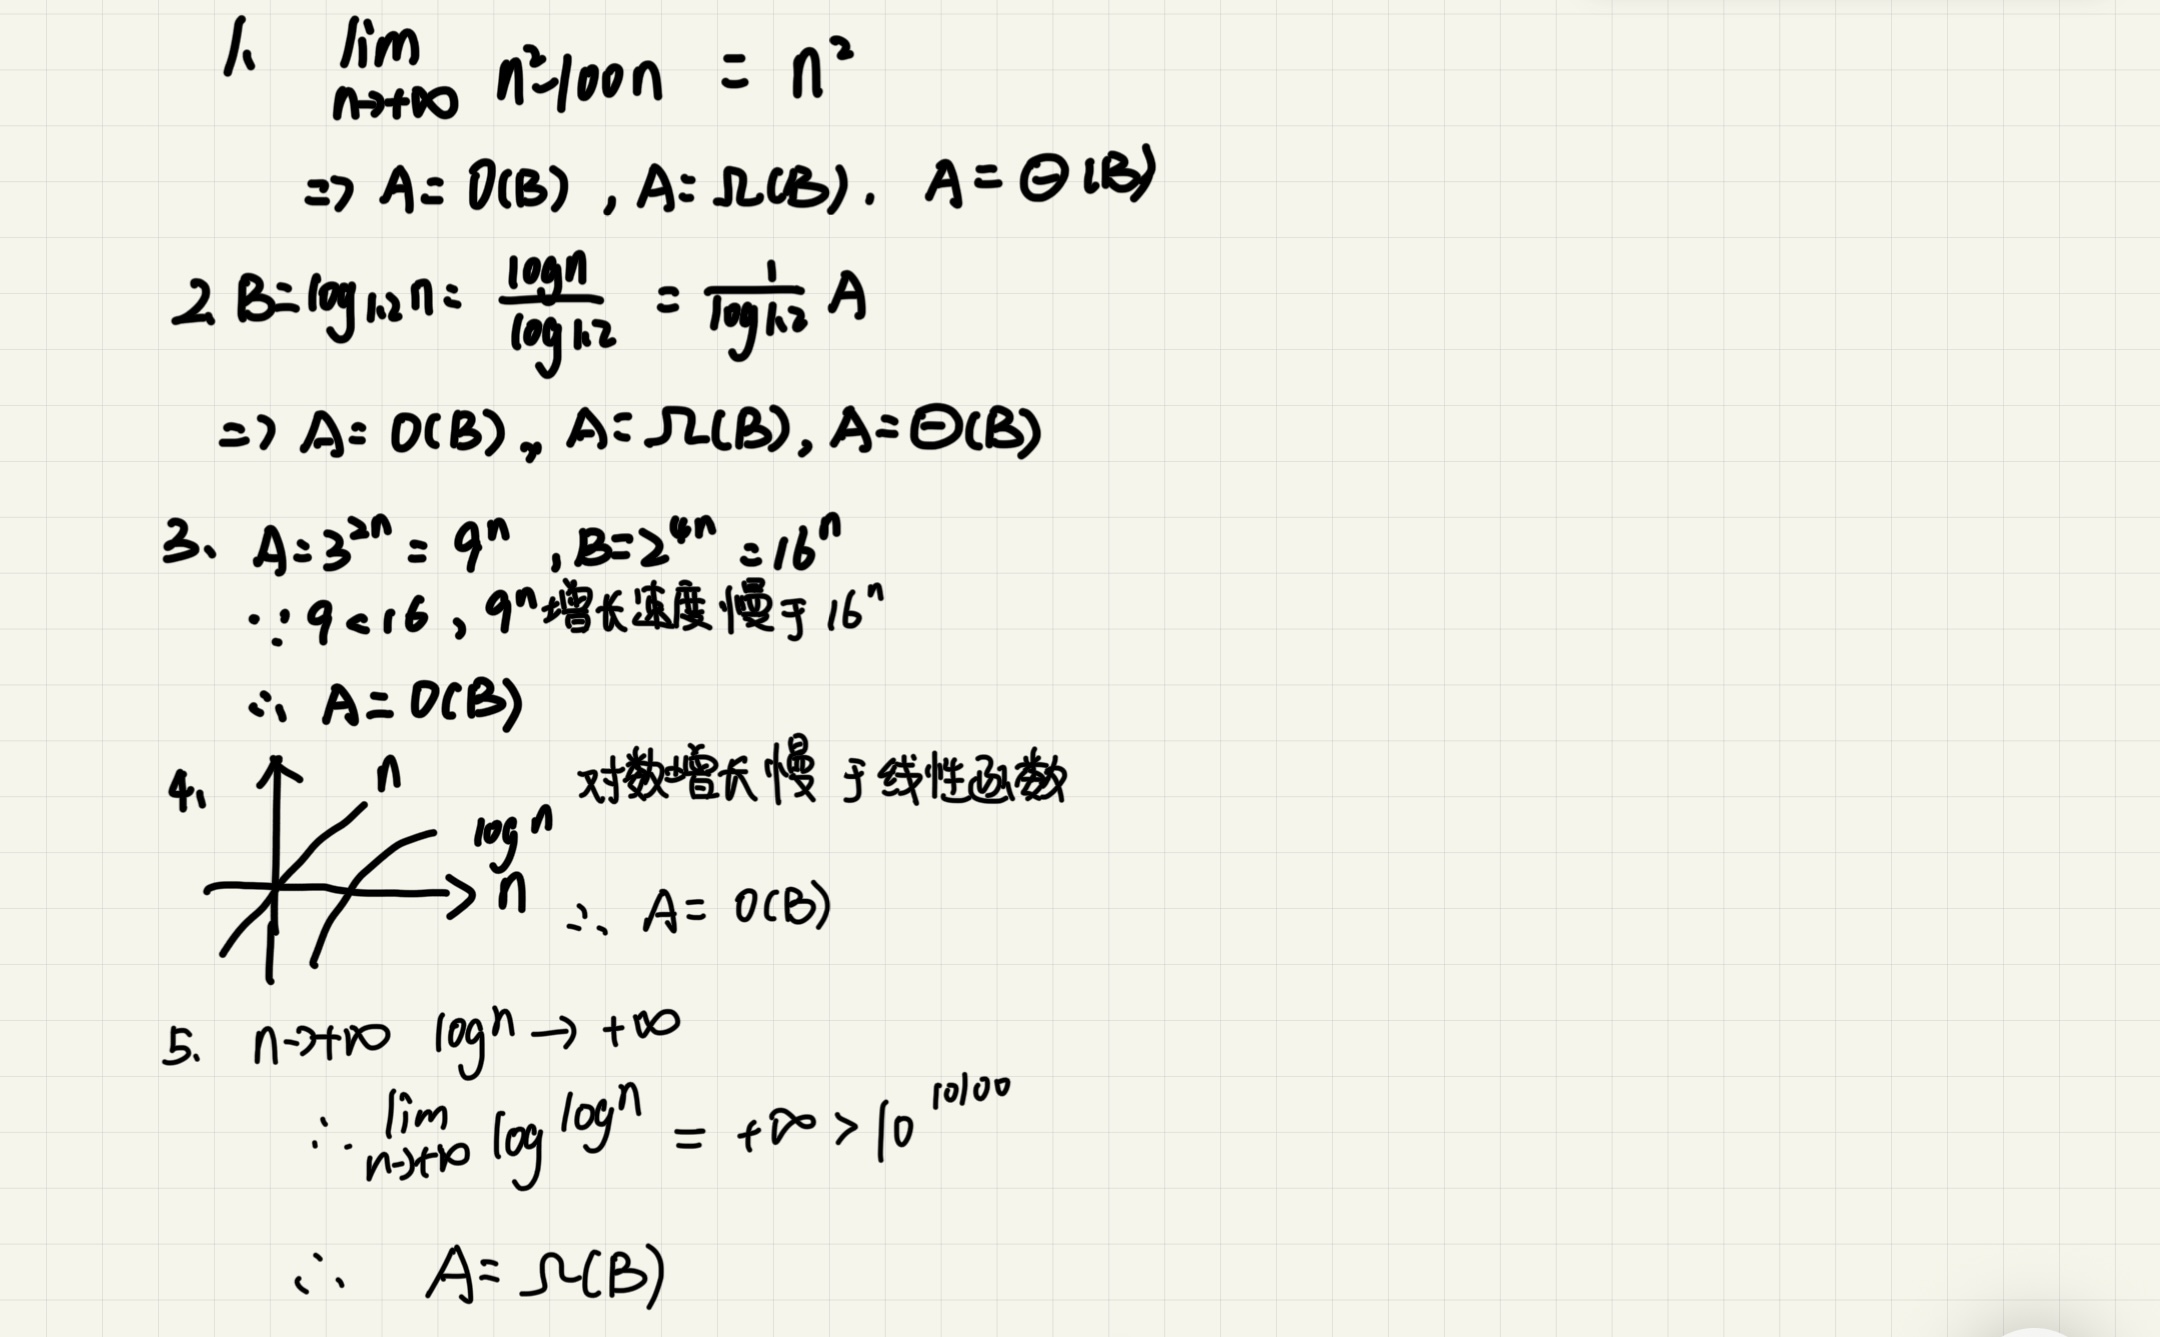 1、 lim n→+∞ n²-100n = n²
=> A=O(B) , A=Ω(B). A=Θ(B)
2、B=log₁.₂ n = logn/log1.2 = 1/log1.2 A
=> A=O(B), A=Ω(B), A=Θ(B)
3、 A=3²ⁿ = 9ⁿ , B=2⁴ⁿ = 16ⁿ
∵ 9<16 , 9ⁿ增长速度慢于16ⁿ
∴ A=O(B)
4、 n 对数增长慢于线性函数
log n
n ∴ A= O(B)
5. n→+∞ log n → +∞
∴ lim n→+∞ log log n = +∞ > 10^10100
∴ A=Ω(B)